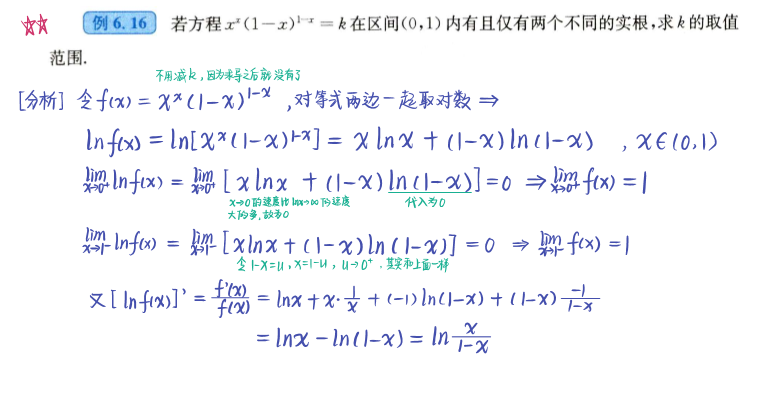 ☆☆ 例 6.16 若方程 xˣ(1-x)¹⁻ˣ = k 在区间(0,1) 内有且仅有两个不同的实根,求 k 的取值
范围.
不用减k,因为求导之后就没有了
[分析] 令 f(x) = xˣ(1-x)¹⁻ˣ ,对等式两边一起取对数 ⇒
ln f(x) = ln[xˣ(1-x)¹⁻ˣ] = x ln x + (1-x) ln(1-x) , x∈(0,1)
lim x→0⁺ ln f(x) = lim x→0⁺ [x ln x + (1-x) ln(1-x)] = 0 ⇒ lim x→0⁺ f(x) = 1
x→0的速度比lnx→∞的速度 代入为0
大的多,故为0
lim x→1⁻ ln f(x) = lim x→1⁻ [x ln x + (1-x) ln(1-x)] = 0 ⇒ lim x→1⁻ f(x) = 1
令 1-x=u, x=1-u, u→0⁺. 其实和上面一样
又 [ln f(x)]' = f'(x)/f(x) = ln x + x·1/x + (-1) ln(1-x) + (1-x) -1/1-x
= ln x - ln(1-x) = ln x/1-x